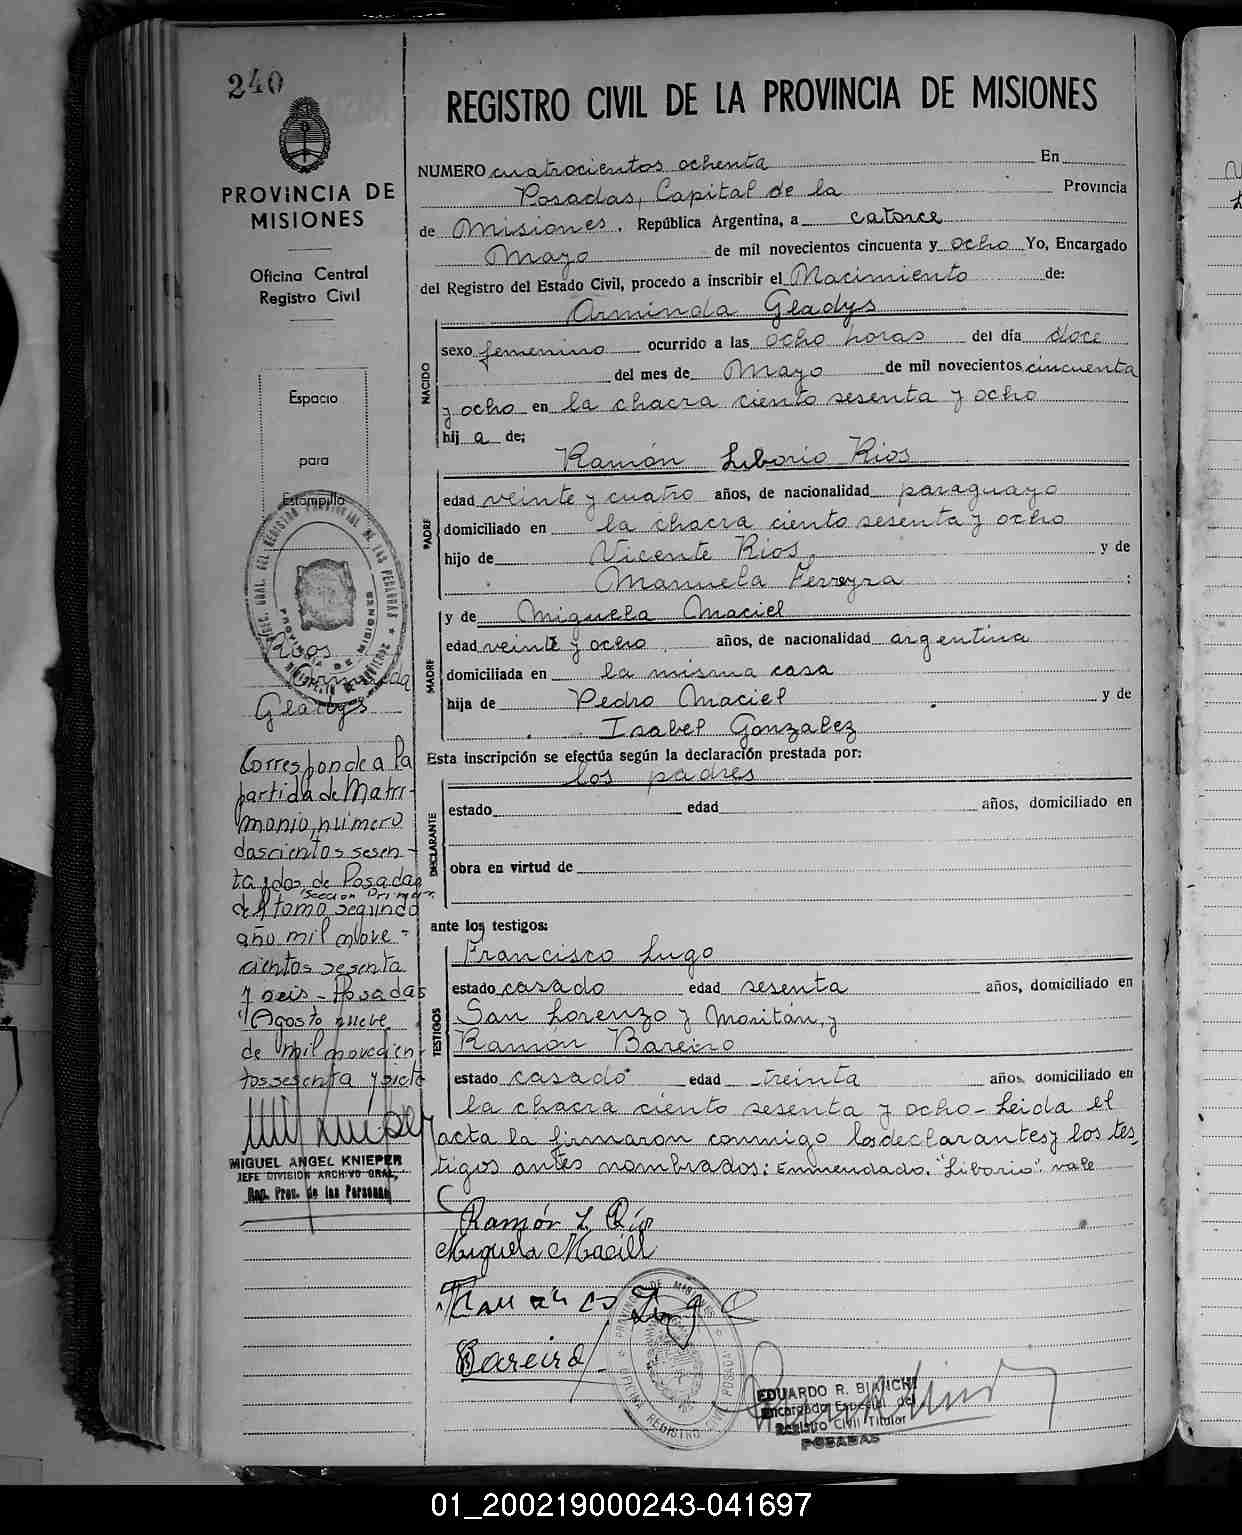 240
PROVINCIA DE
MISIONES
Oficina Central
Registro Civil
Espacio
para
Estampilla
Rios
Arminda
Gladys
Corresponde a la
partida de Matri-
monio, número
doscientos sesen-
ta y dos de Posadas
Sección Primera
del tomo segundo
año mil nove-
cientos sesenta
y seis - Posadas
Agosto nueve
de mil novecien-
tos sesenta y siete
MIGUEL ANGEL KNIEPER
JEFE DIVISION ARCHIVO GRAL.
Reg. Prov. de las Personas
REGISTRO CIVIL DE LA PROVINCIA DE MISIONES
NUMERO cuatrocientos ochenta En
Posadas, Capital de la Provincia
de Misiones, República Argentina, a catorce
Mayo de mil novecientos cincuenta y ocho Yo, Encargado
del Registro del Estado Civil, procedo a inscribir el Nacimiento de:
Arminda Gladys
NACIDO
sexo femenino ocurrido a las ocho horas del día doce
del mes de Mayo de mil novecientos cincuenta
y ocho en la chacra ciento sesenta y ocho
hij a de:
Ramón Liborio Rios
PADRE
edad veinte y cuatro años, de nacionalidad paraguayo
domiciliado en la chacra ciento sesenta y ocho
hijo de Vicente Rios, y de
Manuela Ferreyra ;
MADRE
y de Miguela Maciel
edad veinte y ocho años, de nacionalidad argentina
domiciliada en la misma casa
hija de Pedro Maciel y de
Isabel Gonzalez
Esta inscripción se efectúa según la declaración prestada por:
los padres
DECLARANTE
estado edad años, domiciliado en
obra en virtud de
ante los testigos:
Francisco Lugo
TESTIGOS
estado casado edad sesenta años, domiciliado en
San Lorenzo y Moritán, y
Ramon Bareiro
estado casado edad treinta años, domiciliado en
la chacra ciento sesenta y ocho - Leida el
acta la firmaron conmigo los declarantes y los tes-
tigos antes nombrados: Enmendado: "Liborio". vale
Ramón L Ríos
Miguela Maciel
Francisco Lugo
Bareiro
EDUARDO R. BIANCHI
Encargado Especial del
Registro Civil Titular
POSADAS
01_200219000243-041697